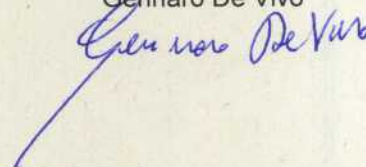 Gennaro De Vivo
Gennaro De Vivo